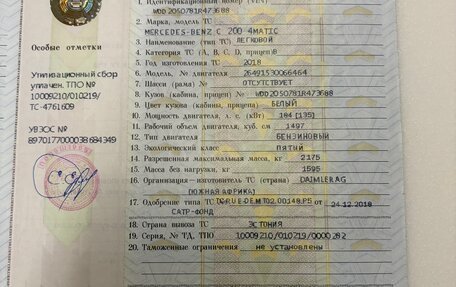 Особые отметки
Утилизационный сбор
уплачен. ТПО №
10009210/010219/
ТС-4761609
УВЭОС №
8970177000038684349
1. Идентификационный номер (VIN)
WDD2050781R473688
2. Марка, модель ТС
MERCEDES-BENZ C 200 4MATIC
3. Наименование (тип ТС) ЛЕГКОВОЙ
4. Категория ТС (A, B, C, D, прицеп) B
5. Год изготовления ТС 2018
6. Модель, № двигателя 26491530066464
7. Шасси (рама) № ОТСУТСТВУЕТ
8. Кузов (кабина, прицеп) № WDD2050781R473688
9. Цвет кузова (кабины, прицепа) БЕЛЫЙ
10. Мощность двигателя, л. с. (кВт) 184 [135]
11. Рабочий объем двигателя, куб. см 1497
12. Тип двигателя БЕНЗИНОВЫЙ
13. Экологический класс ПЯТЫЙ
14. Разрешенная максимальная масса, кг 2175
15. Масса без нагрузки, кг 1595
16. Организация-изготовитель ТС (страна) DAIMLER AG
(ЮЖНАЯ АФРИКА)
17. Одобрение типа ТС № ТС RU E-DE.МТ02.00148.Р5 от 24.12.2018
САТР-ФОНД
18. Страна вывоза ТС ЭСТОНИЯ
19. Серия, № ТД, ТПО 10009210/010219/0000282
20. Таможенные ограничения не установлены